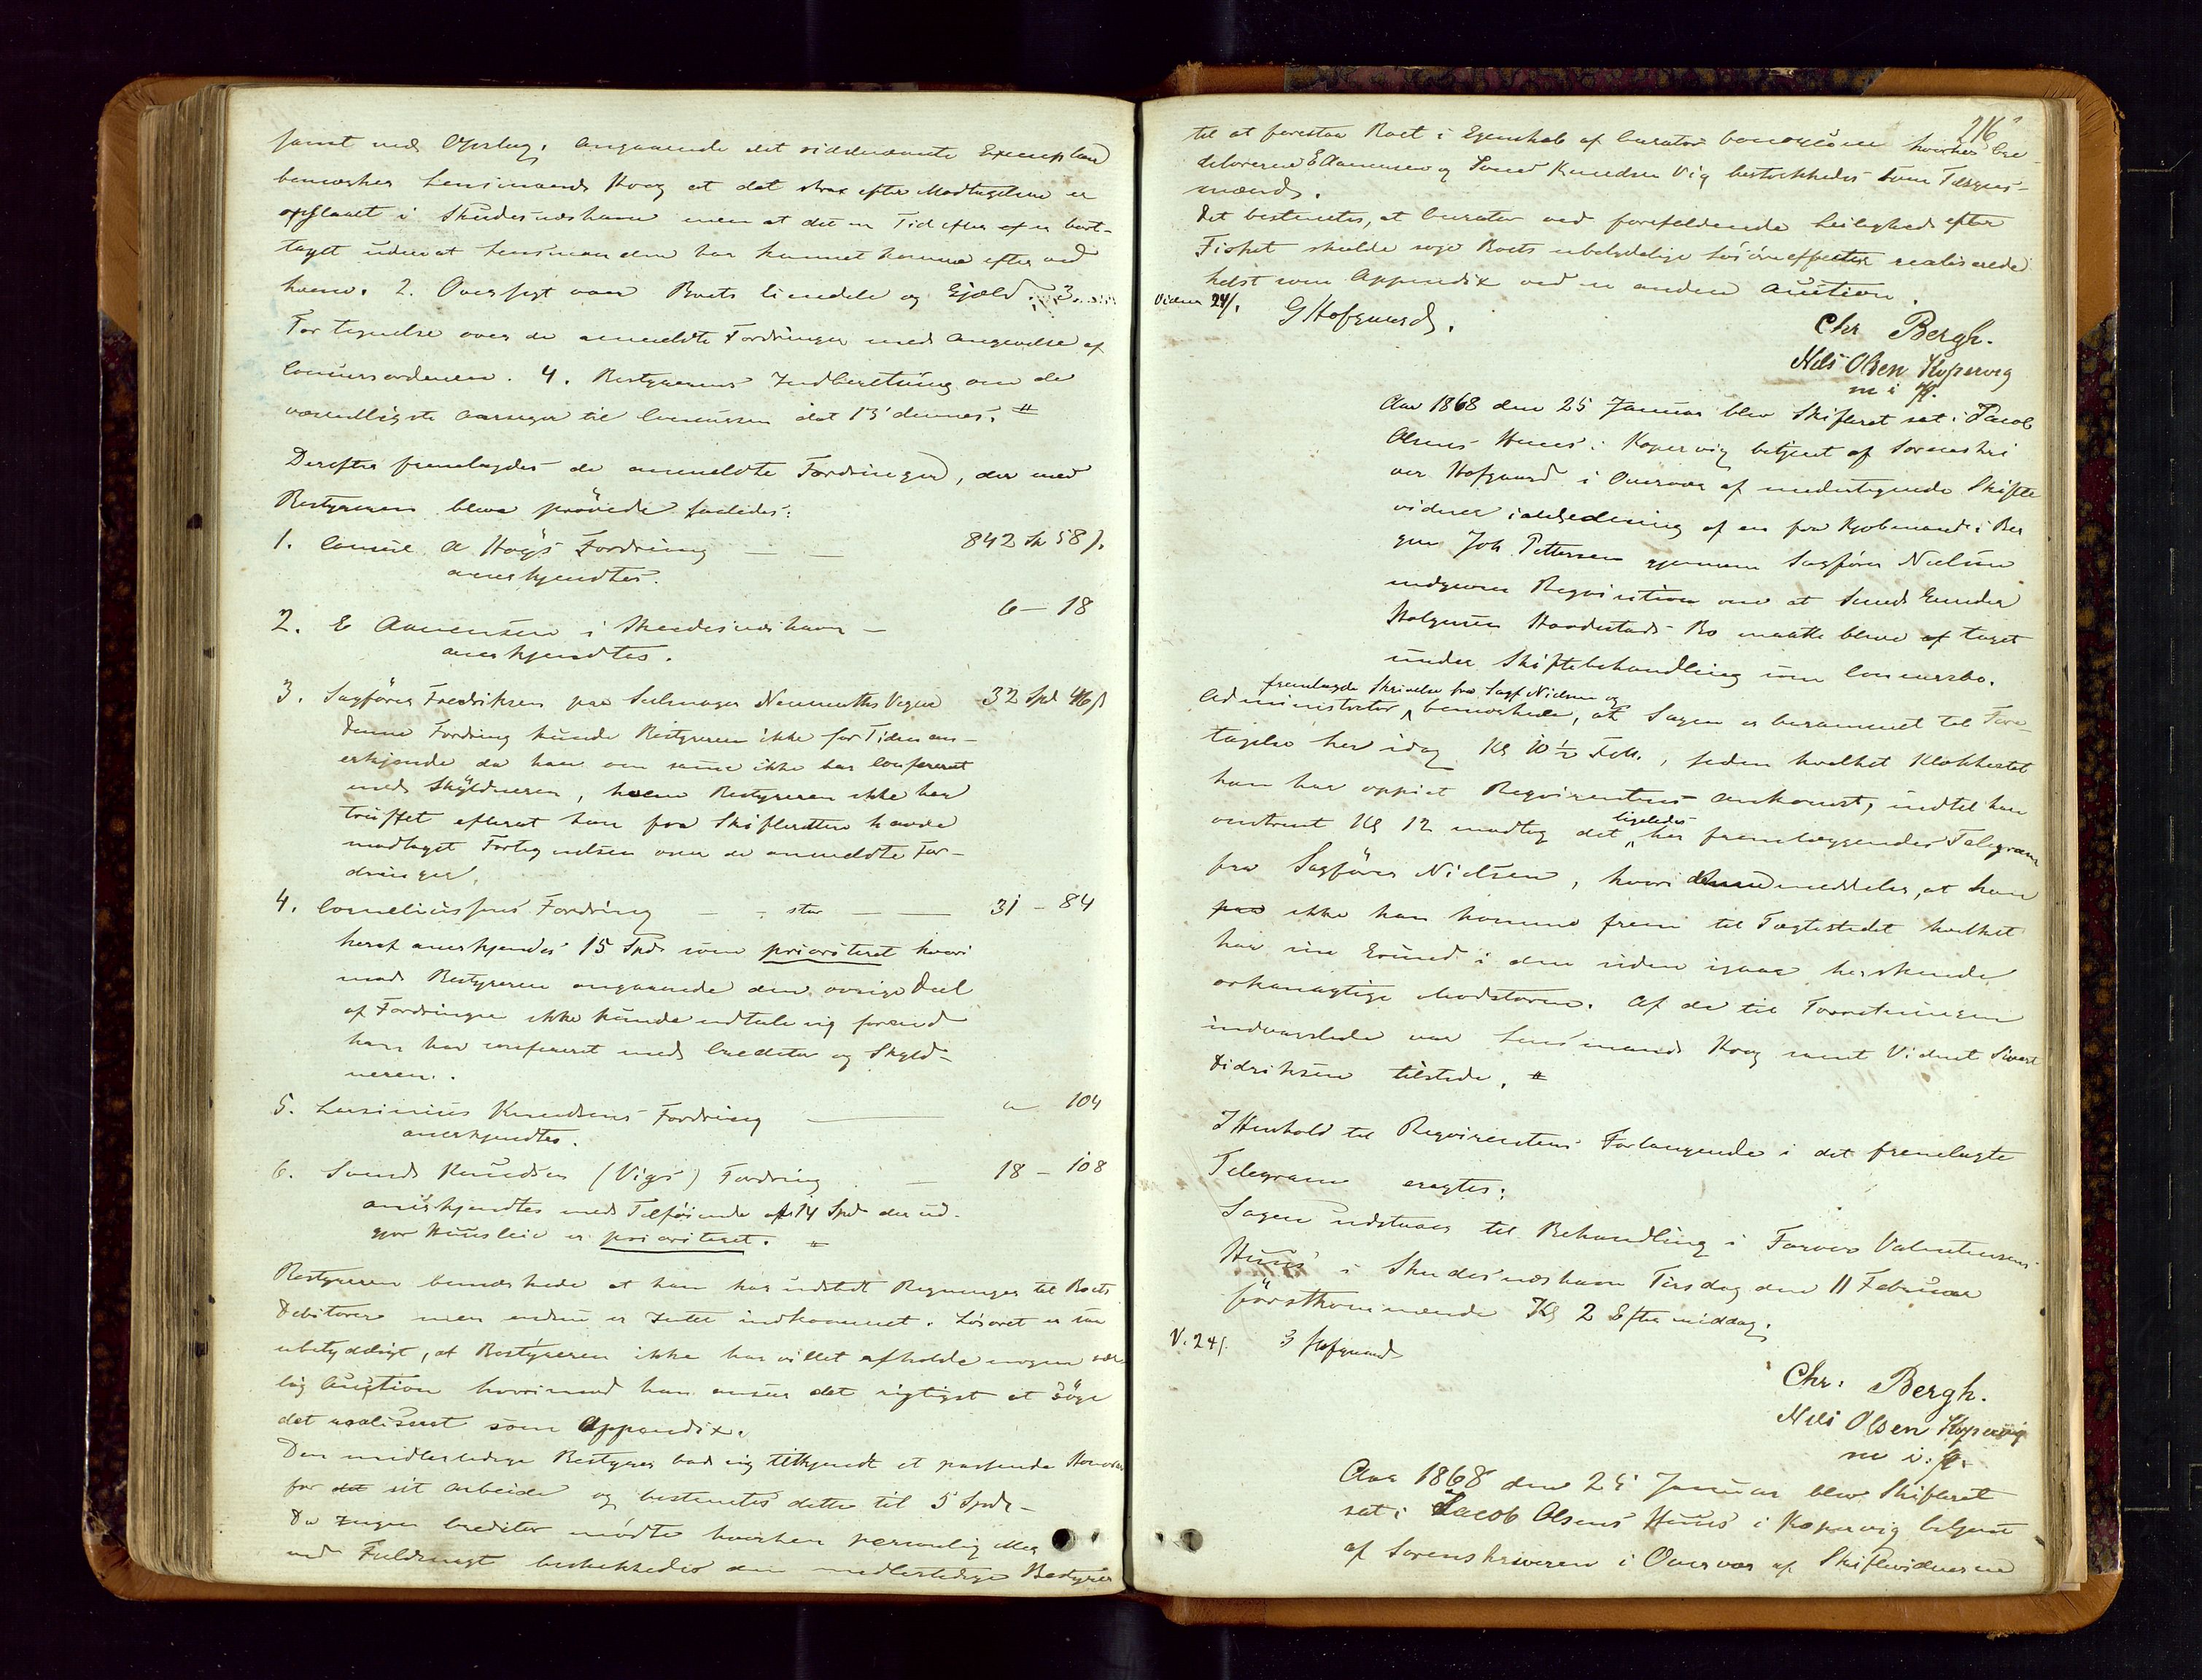 samt med Opslag, angaaende det sidstnævnte Exemplar
bemærker Lensmand Koog at det strax efter Modtagelsen er
opslaaet i Skudesnæshavn men at det en Tid efter er bort-
taget uden at Lensmanden har kunnet komme efter ved
hvem. 2. Oversigt over Boets Eiendele og Gjæld. 3.
Fortegnelse over de anmeldte Fordringer med Angivelse af
Concursordenen. 4. Bestyrerens Indberetning om de
væsentligste Aarsager til Concursen dat 13 dennes. #
Derefter fremlagdes de anmeldte Fordringer, der med
Bestyreren bleve prövede saaledes:
1. Consul A Högs Fordring — — 842 Sp 58 s.
anerkjendtes.
2. E Aanensen i Skudesnæshavn — 6 — 18
anerkjendtes.
3. Sagförer Fredriksen paa Seilmager Vegne 32 Spd 46 s
Denne Fordring kunde Bestyreren ikke for Tiden an-
erkjende da han om samme ikke har confereret
med Skyldneren, hvem Bestyreren ikke har
truffet efterat han fra Skifteretten havde
modtaget Fortegnelsen over de anmeldte For-
dringer.
4. Corneliussens Fordring — stor — — 31 — 84
heraf anerkjendes 15 Spd som prioriteret hvori
mod Bestyreren angaaende den øvrige Deel
af Fordringen ikke kunde udtale sig forend
han har confereret med Creditor og Skyld-
neren.
5. Knudsens Fordring — " 104
anerkjendtes.
6. Svend Knudsen (Vigs) Fordring — 18 — 108
anerkjendtes med Tilföiende at 14 Spd der ud-
gjør Huusleie er prioriteret. #
Bestyreren bemærkede at han har udstedt Regninger til Boets
Debitorer men endnu er Intet indkommet. Lösöret er saa
ubetydeligt, at Bestyreren ikke har villet afholde nogen sær-
lig Auction hvorimod han anser det rigtigst at söge
det realiseret som Appendix.
Den midlertidige Bestyrer bad sig tilkjendt et passende Honorar
for sit Arbeide og bestemtes dette til 5 Spd —
Da Ingen Creditor mödte hverken personlig eller
ved Fuldmægt beskikkedes den midlertidige Bestyrer
216
til at forestaa Boet i Egenskab af Curator bonorum hvorhos Cre-
ditorerne E Aanensen og Svend Knudsen Vig beskikkedes som Tilsyns-
mænd.
Det bestemtes, at Curator ved forefaldende Leilighed efter
Fisket skulde söge Boets ubetydelige Lösöreeffecter realiserede
helst som Appendix ved en anden Auction.
Vidner 24/. G Hofgaard.
Chr Bergh.
Nils Olsen Kopervig
m i P.
Aar 1868 den 25 Januar blev Skifteret sat i Jacob
Olsens Huus i Kopervig betjent af Sorenskri
ver Hofgaard i Overvær af undertegnede Skifte
vidner i anledning af en fra Kjøbmand i Ber
gen Joh Pettersen gjennem Sagförer Nielsen
indgiven Reqvisition om at
Bo maatte blive taget
under Skiftebehandling som Concursbo.
fremlagde Skrivelse fra Sagf Nielsen og
Administrator bemærkede, at Sagen er berammet til Fore-
tagelse her idag Kl 10 ½ Fm., siden hvilket Klokkeslet
han har oppiet Reqvirentens Ankomst, indtil han
ligeledes
omtrent Kl 12 modtog det her fremlæggendes Telegram
fra Sagförer Nielsen, hvori denne meddeler, at han
ikke kan komme frem til Tægtestedet hvilket
har sin Grund i den siden igaar herskende
orkanagtige Modstorm. Af de til Forretningen
indvarslede var Lensmand Koog samt Vidnet Sivert
Didriksen tilstede. #
I Henhold til Reqvirentens Forlangende i det fremlagte
Telegram eragtes:
Sagen udstaaer til Behandling i Valentinsens
Huus i Skudesnæshavn Tirsdag den 11 Februar
förstkommende Kl 2 Eftermiddag.
V. 24/. G Hofgaard
Chr. Bergh.
Nils Olsen Kopervig
m i. P.
Aar 1868 den 25 Januar blev Skifteret
sat i Jacob Olsens Huus i Kopervig betjent
af Sorenskriveren i Overvær af Skiftevidnerne